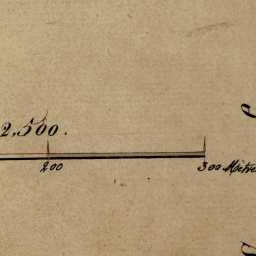 2,500.
200 300 Mètres